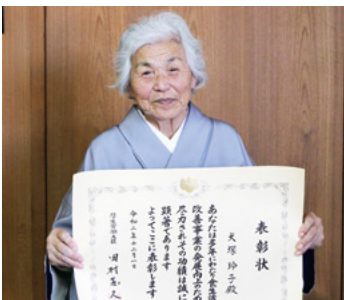 表彰状
犬塚玲子殿
あなたは多年にわたり食生活
改善事業の発展向上のため
尽力されその功績は誠に
顕著であります
よってここに表彰します
令和二年十二月一日
厚生労働大臣 田村憲久